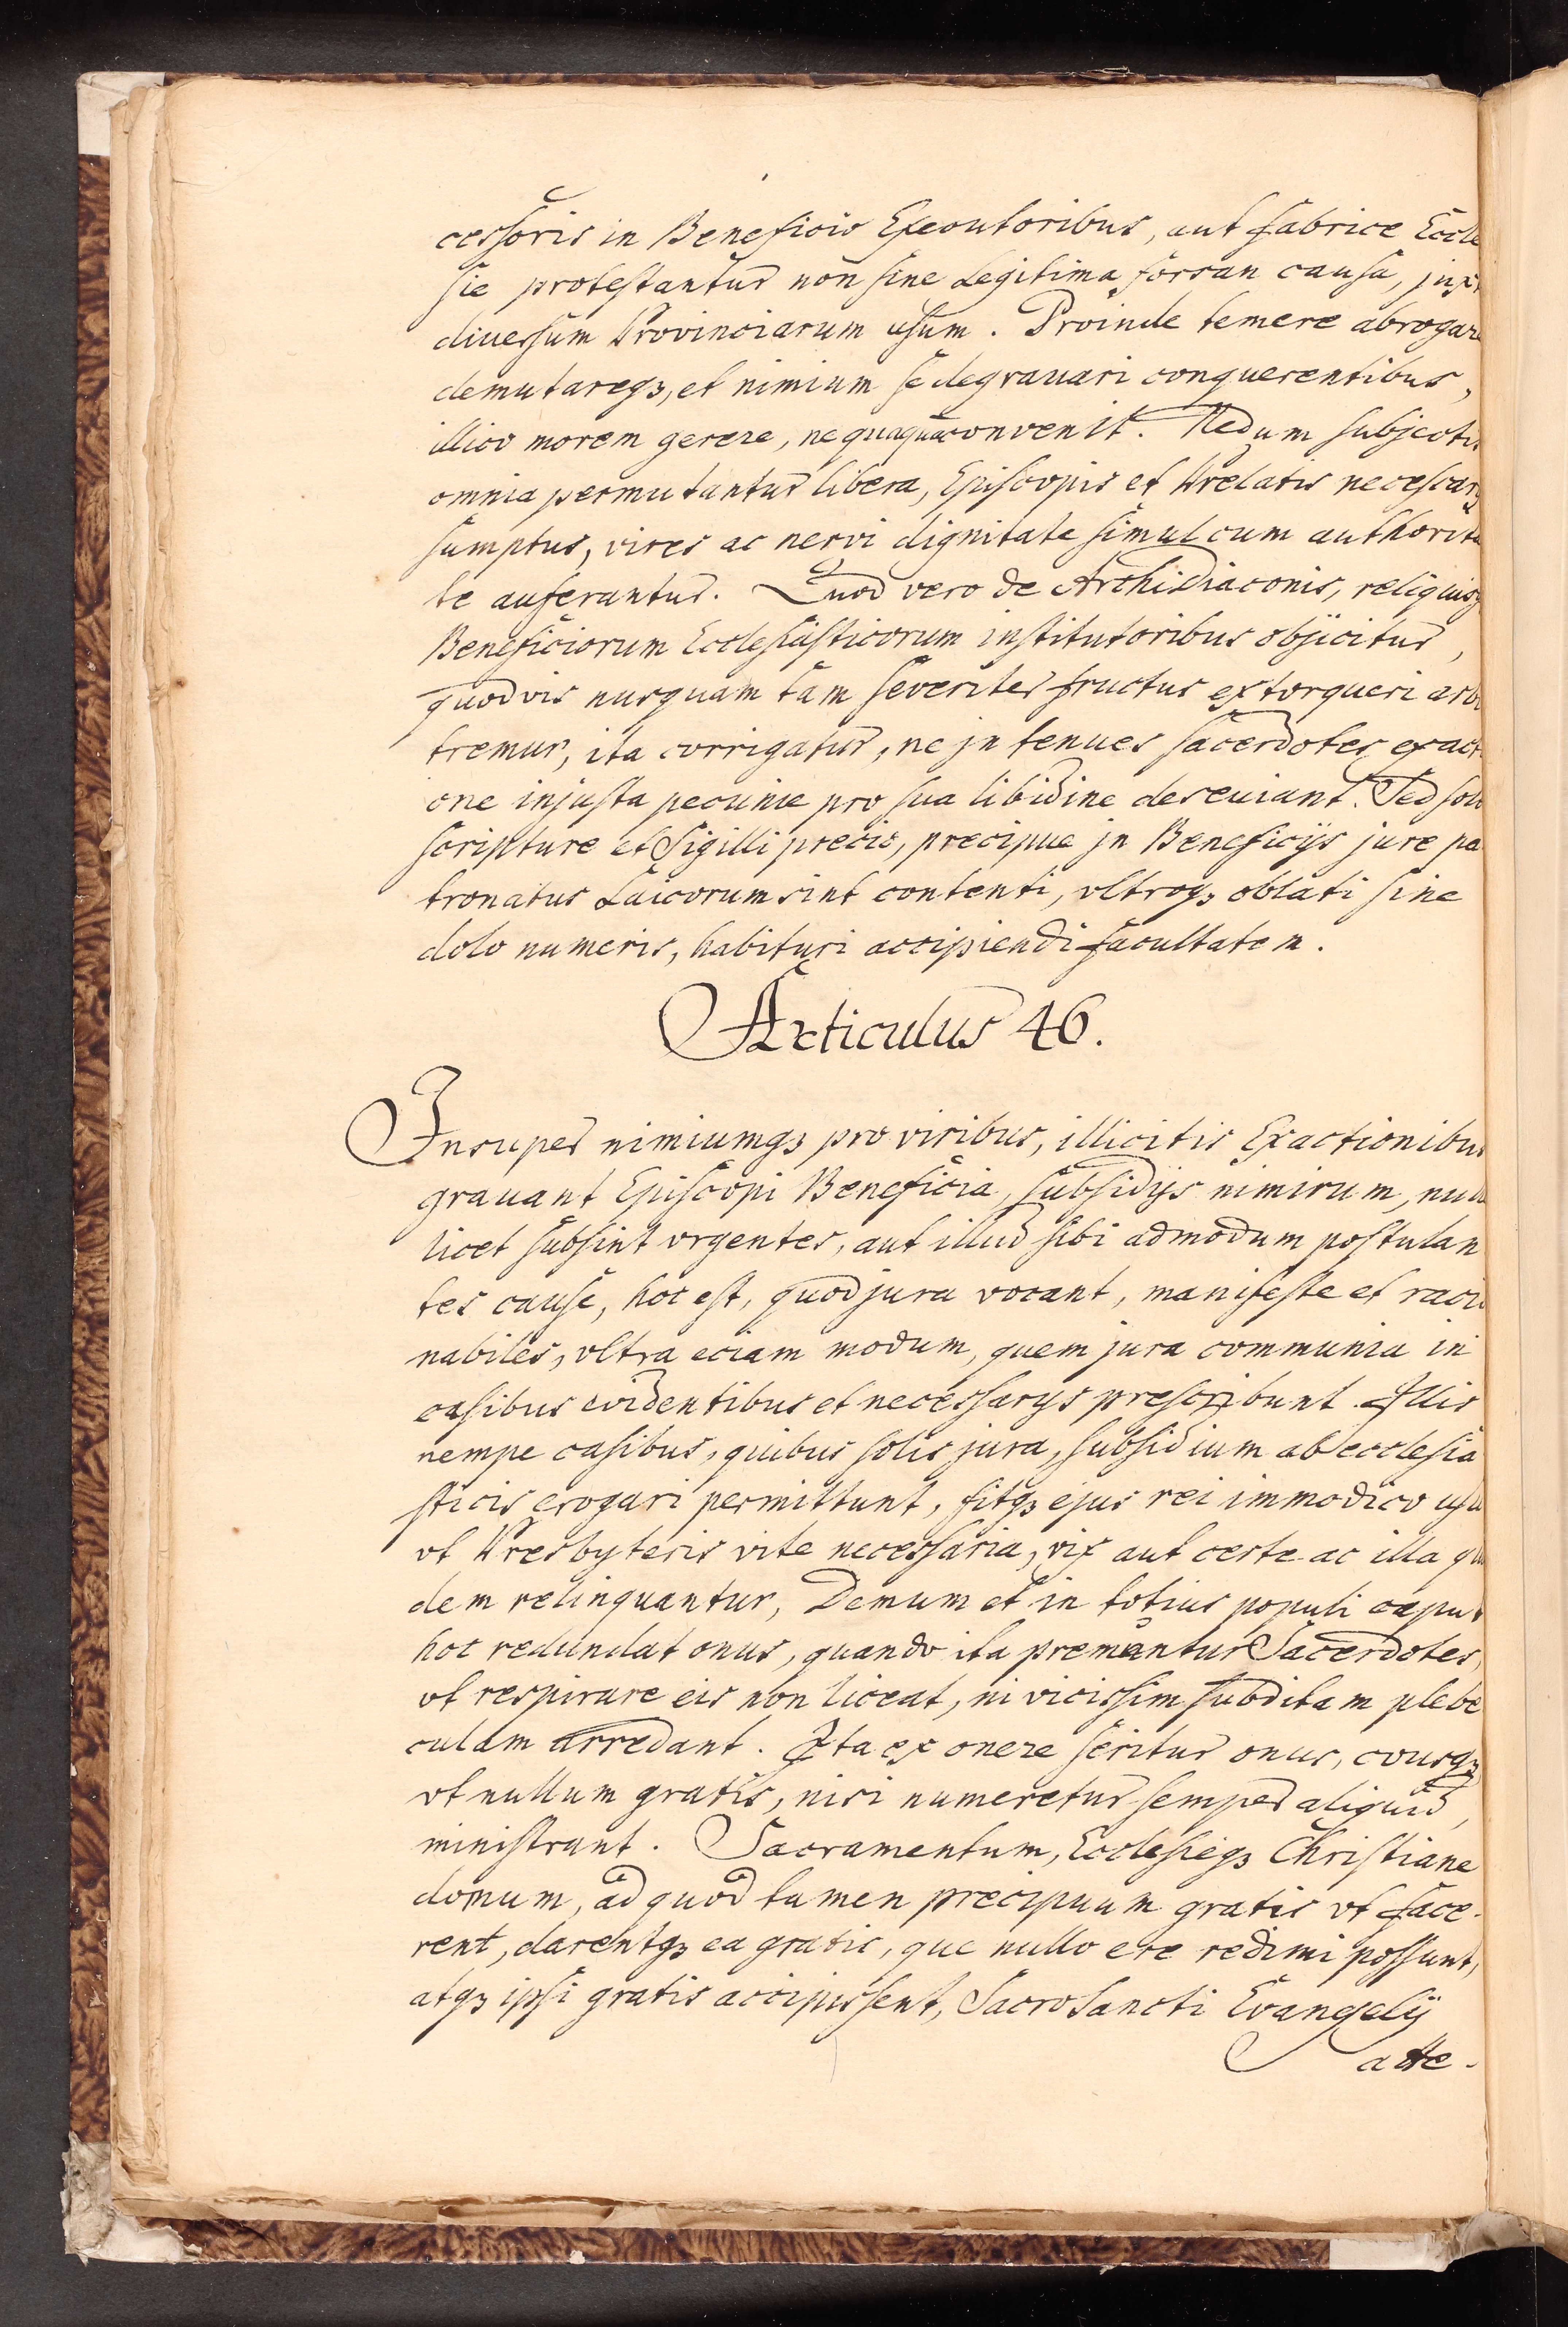 cessoris in Beneficio Executoribus, aut fabrice Eccle
sie protestantur non sine Legitima forsan causa, juxt
diuersum Provinciarum usum. Proinde temere abrogare
demutareqz, et nimium se degrauari conquerentibus,
illico morem gerere, nequaquaconvenit. Nedum subjectis
omnia permutantur libera, Episcopis et Prelatis necessarij
sumptus, vires ac nervi dignitate simul cum authorita
te auferantur. Quod vero de Archidiaconis, reliquisqz
Beneficiorum Ecclesiasticorum institutoribus objicitur,
quodvis nusquam tam severiter fructus extorqueri arbi
tremur, ita corrigatur, ne jn tenues sacerdotes exacti
one injusta pecunie pro sua libidine deseuiant. Sed solo
scripture et Sigilli precio, precipue jn Beneficijs jure pa
tronatus Laicorum sint contenti, vltroqz oblati sine
dolo numeris, habituri accipiendi facultatem.
Articulus 46.
Insuper nimiumqz pro viribus, illicitis Exactionibus
grauant Episcopi Beneficia, subsidijs nimirum, null
licet subsint vrgentes, aut illud sibi admodum postulan
tes cause, hoc est, quod jura vocant, manifeste et racio
nabiles, vltra eciam modum, quem jura communia in
casibus evidentibus et necessarijs prescribunt. Illis
nempe casibus, quibus solis jura, subsidium ab ecclesia
sticis erogari permittunt, fitqz ejus rei immodico usu
vt Presbyteris vite necessaria, vix aut certe ac illa qui
dem relinquantur, Demum et in totius populi caput
hoc redundat onus, quando ita premuntur Sacerdotes,
vt respirare eis non liceat, ni vicissim subditam plebe
culam arredant. Ita ex onere seritur onus, eousqz
vt nullum gratis, nisi numeretur semper aliquid,
ministrant. Sacramentum, Ecclesieqz Christiane
domum, ad quod tamen precipuum gratis vt face-
rent, darentqz ea gratis, que nullo ere redimi possunt,
atqz ipsi gratis accipissent, Sacrosancti Evangelij
atte-